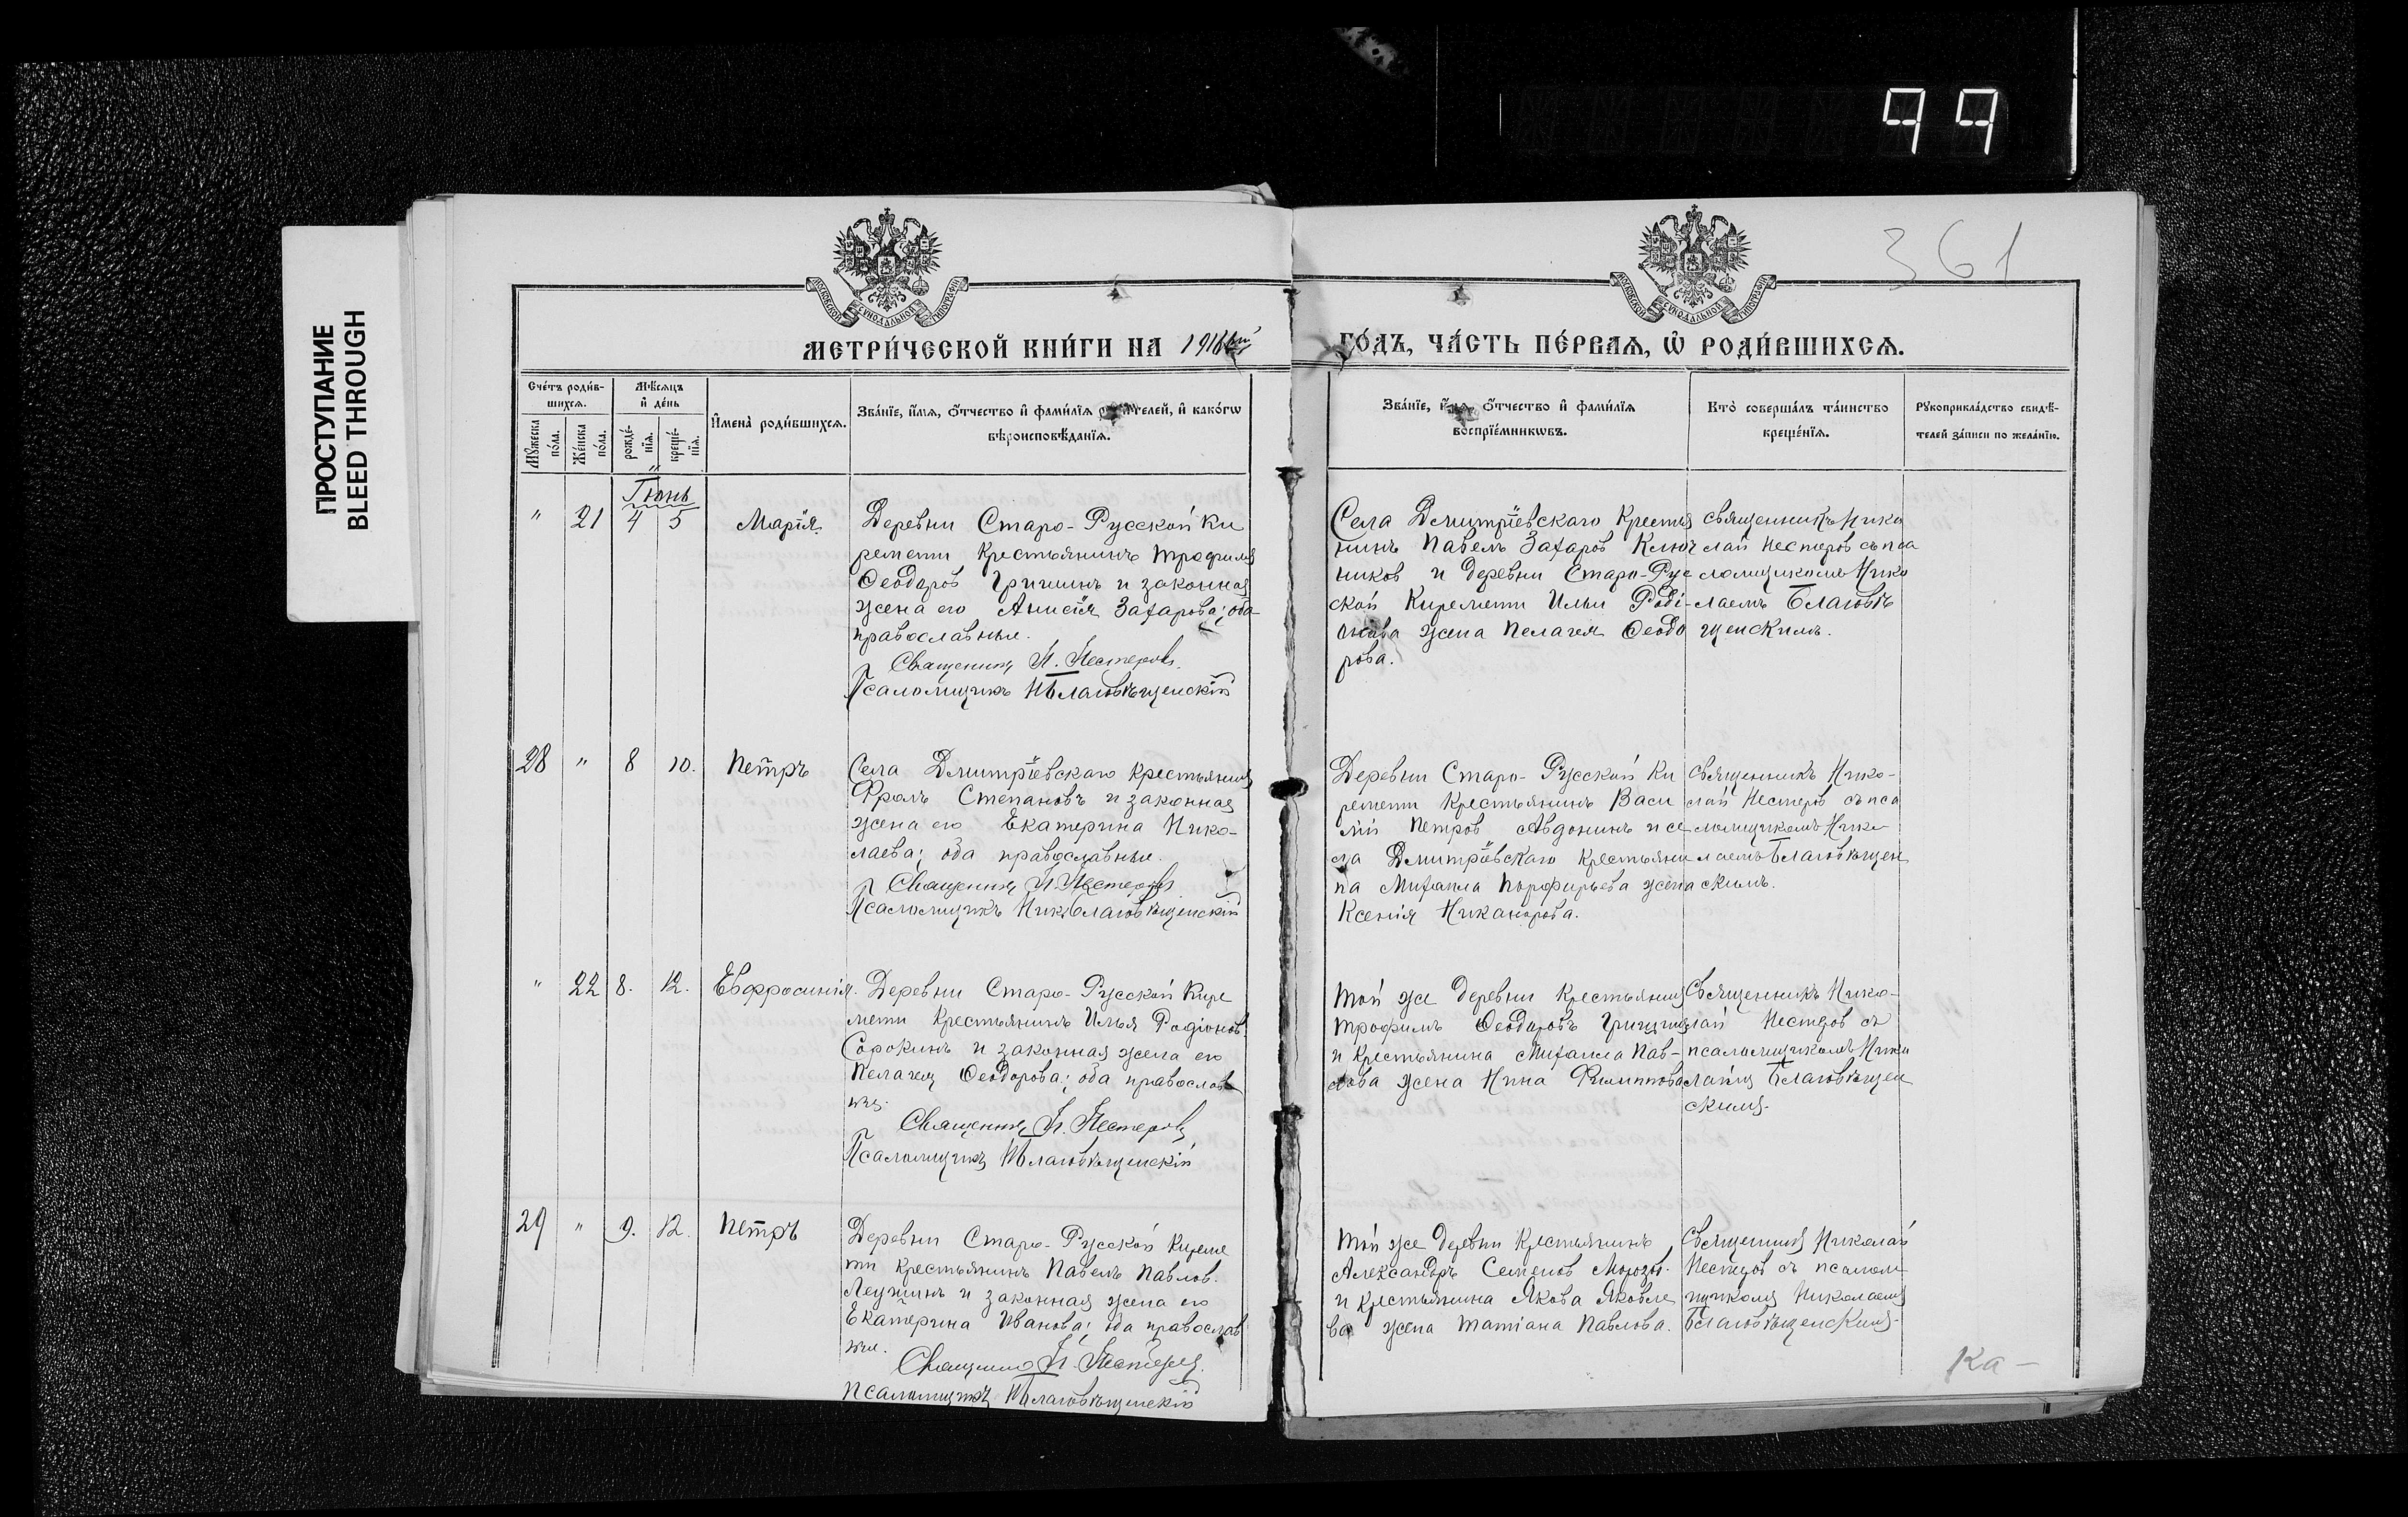 99
ПРОСТУПАНИЕ
BLEED THROUGH
361
МОСКОВСКОЙ СѴНОДАЛЬНОЙ ТИПОГРАФІИ
МОСКОВСКОЙ СѴНОДАЛЬНОЙ ТИПОГРАФІИ
МЕТРИ́ЧЕСКОЙ КНИ́ГИ НА
ГО́ДЪ, ЧА́СТЬ ПЕ́РВАЯ, Ѡ РОДИ́ВШИХСЯ.
Сче́тъ роди́в-
шихся.
Мѣ́сяцъ
и҆ де́нь
Мꙋ́жеска
по́ла.
Же́нска
по́ла.
рожде́-
нїѧ.
креще́-
нїѧ.
И҆мена̀ роди́вшихся.
Зва́нїе, и҆́мя, о҆́тчество и҆ фами́лїя роди́телей, и҆ како́гѡ
вѣроисповѣ́данїя.
Зва́нїе, и҆́мя, о҆́тчество и҆ фами́лїя
воспрїе́мникѡвъ.
Кто̀ соверша́лъ та́инство
креще́нїя.
Рꙋкоприкла́дство свидѣ́-
телей за́писи по жела́нїю.
Іюнь
" 21 4 5 Марія.
Деревни Старо-Русской Ки
ремети крестьянинъ Трофимъ
Ѳеодоров Гришинъ и законная
жена его Анисія Захарова; оба
православные.
Священникъ Н. Нестеровъ.
Псаломщикъ Н Благовѣщенскій
Села Дмитріевскаго Крестья
нинъ Павелъ Захаров Ключ
ников и деревни Старо-Рус
ской Киремети Ильи Роді-
онова жена Пелагея Ѳеодо
рова.
священникъ Нико
лай Нестеров съ пса
ломщикомъ Нико
лаемъ Благовѣ
щенскимъ.
28 " 8 10. Петръ
Села Дмитріевскаго крестьянинъ
Фролъ Степановъ и законная
жена его Екатерина Нико-
лаева; оба православные.
Священникъ Н. Нестеровъ
Псаломщикъ Ник. Благовѣщенскій
Деревни Старо-Русской Ки
ремети крестьянинъ Васи
лій Петров Авдонинъ и се
ла Дмитріевскаго крестьяни
на Михаила Порфирьева жена
Ксенія Никанорова.
священникъ Нико-
лай Нестеров съ пса
ломщикомъ Нико-
лаемъ Благовѣщен
скимъ.
" 22 8. 12. Евфросинія.
Деревни Старо-Русской Кире
мети крестьянинъ Илья Родіонов.
Сорокинъ и законная жена его
Пелагея Ѳеодорова; оба православ
ные.
Священникъ Н. Нестеровъ
Псаломщикъ Н Благовѣщенскій
Той же деревни крестьянинъ
Трофимъ Ѳеодоровъ Гришинъ
и крестьянина Михаила Пав-
лова жена Нина Филиппова
Священникъ Нико-
лай Нестеров съ
псаломщикомъ Нико
лаемъ Благовѣщен
скимъ.
29 " 9. 12. Петръ
Деревни Старо-Русской Киреме
ти крестьянинъ Павелъ Павлов.
и законная жена его
Екатерина Иванова; оба православ
ные.
Священникъ Н. Нестеровъ.
Псаломщикъ Н Благовѣщенскій
Той же деревни крестьянинъ
Александръ Семенов Морозов.
и крестьянина Якова Яковле
ва жена Татіана Павлова.
Священникъ Николай
Нестеров съ псалом
щикомъ Николаемъ
Благовѣщенскимъ.
Ка-